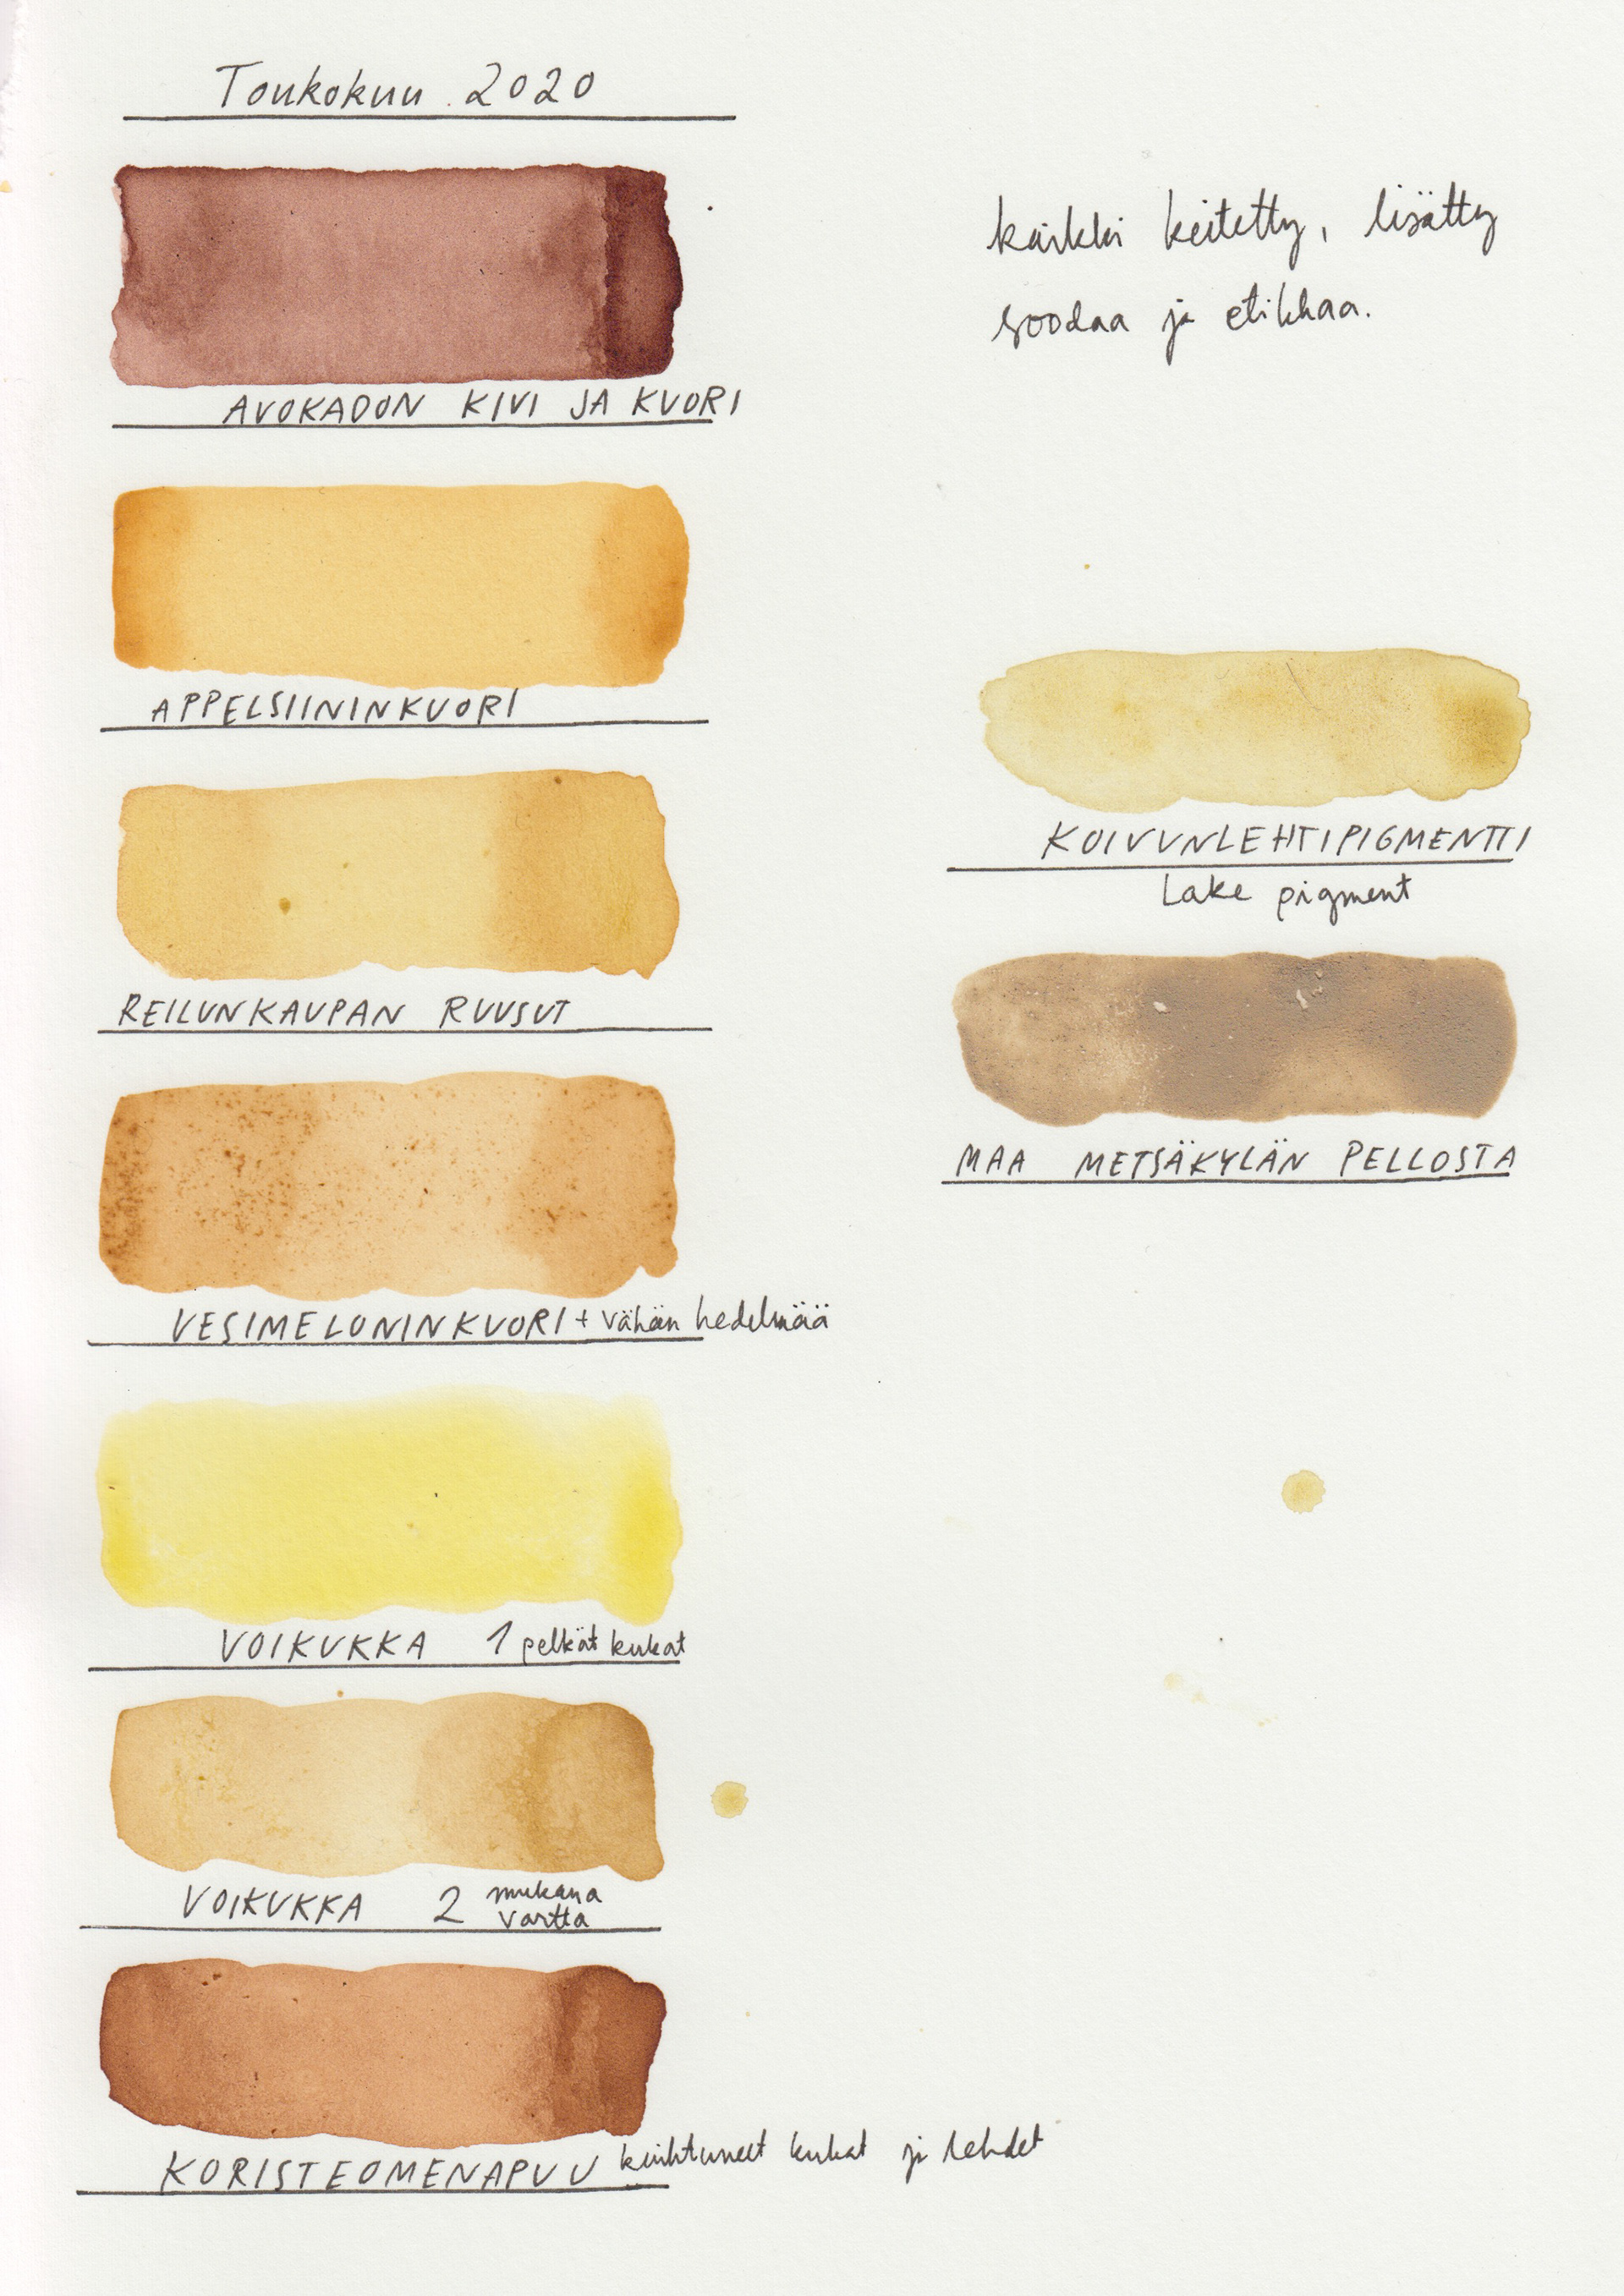 Toukokuu 2020
kaikki keitetty, lisätty
soodaa ja etikkaa.
AVOKADON KIVI JA KUORI
APPELSIININKUORI
KOIVUNLEHTIPIGMENTTI
Lake pigment
REILUNKAUPAN RUUSUT
MAA METSÄKYLÄN PELLOSTA
VESIMELONINKUORI + vähän hedelmää
VOIKUKKA 1 pelkät kukat
VOIKUKKA 2 mukana
vartta
KORISTEOMENAPUU kuihtuneet kukat ja lehdet